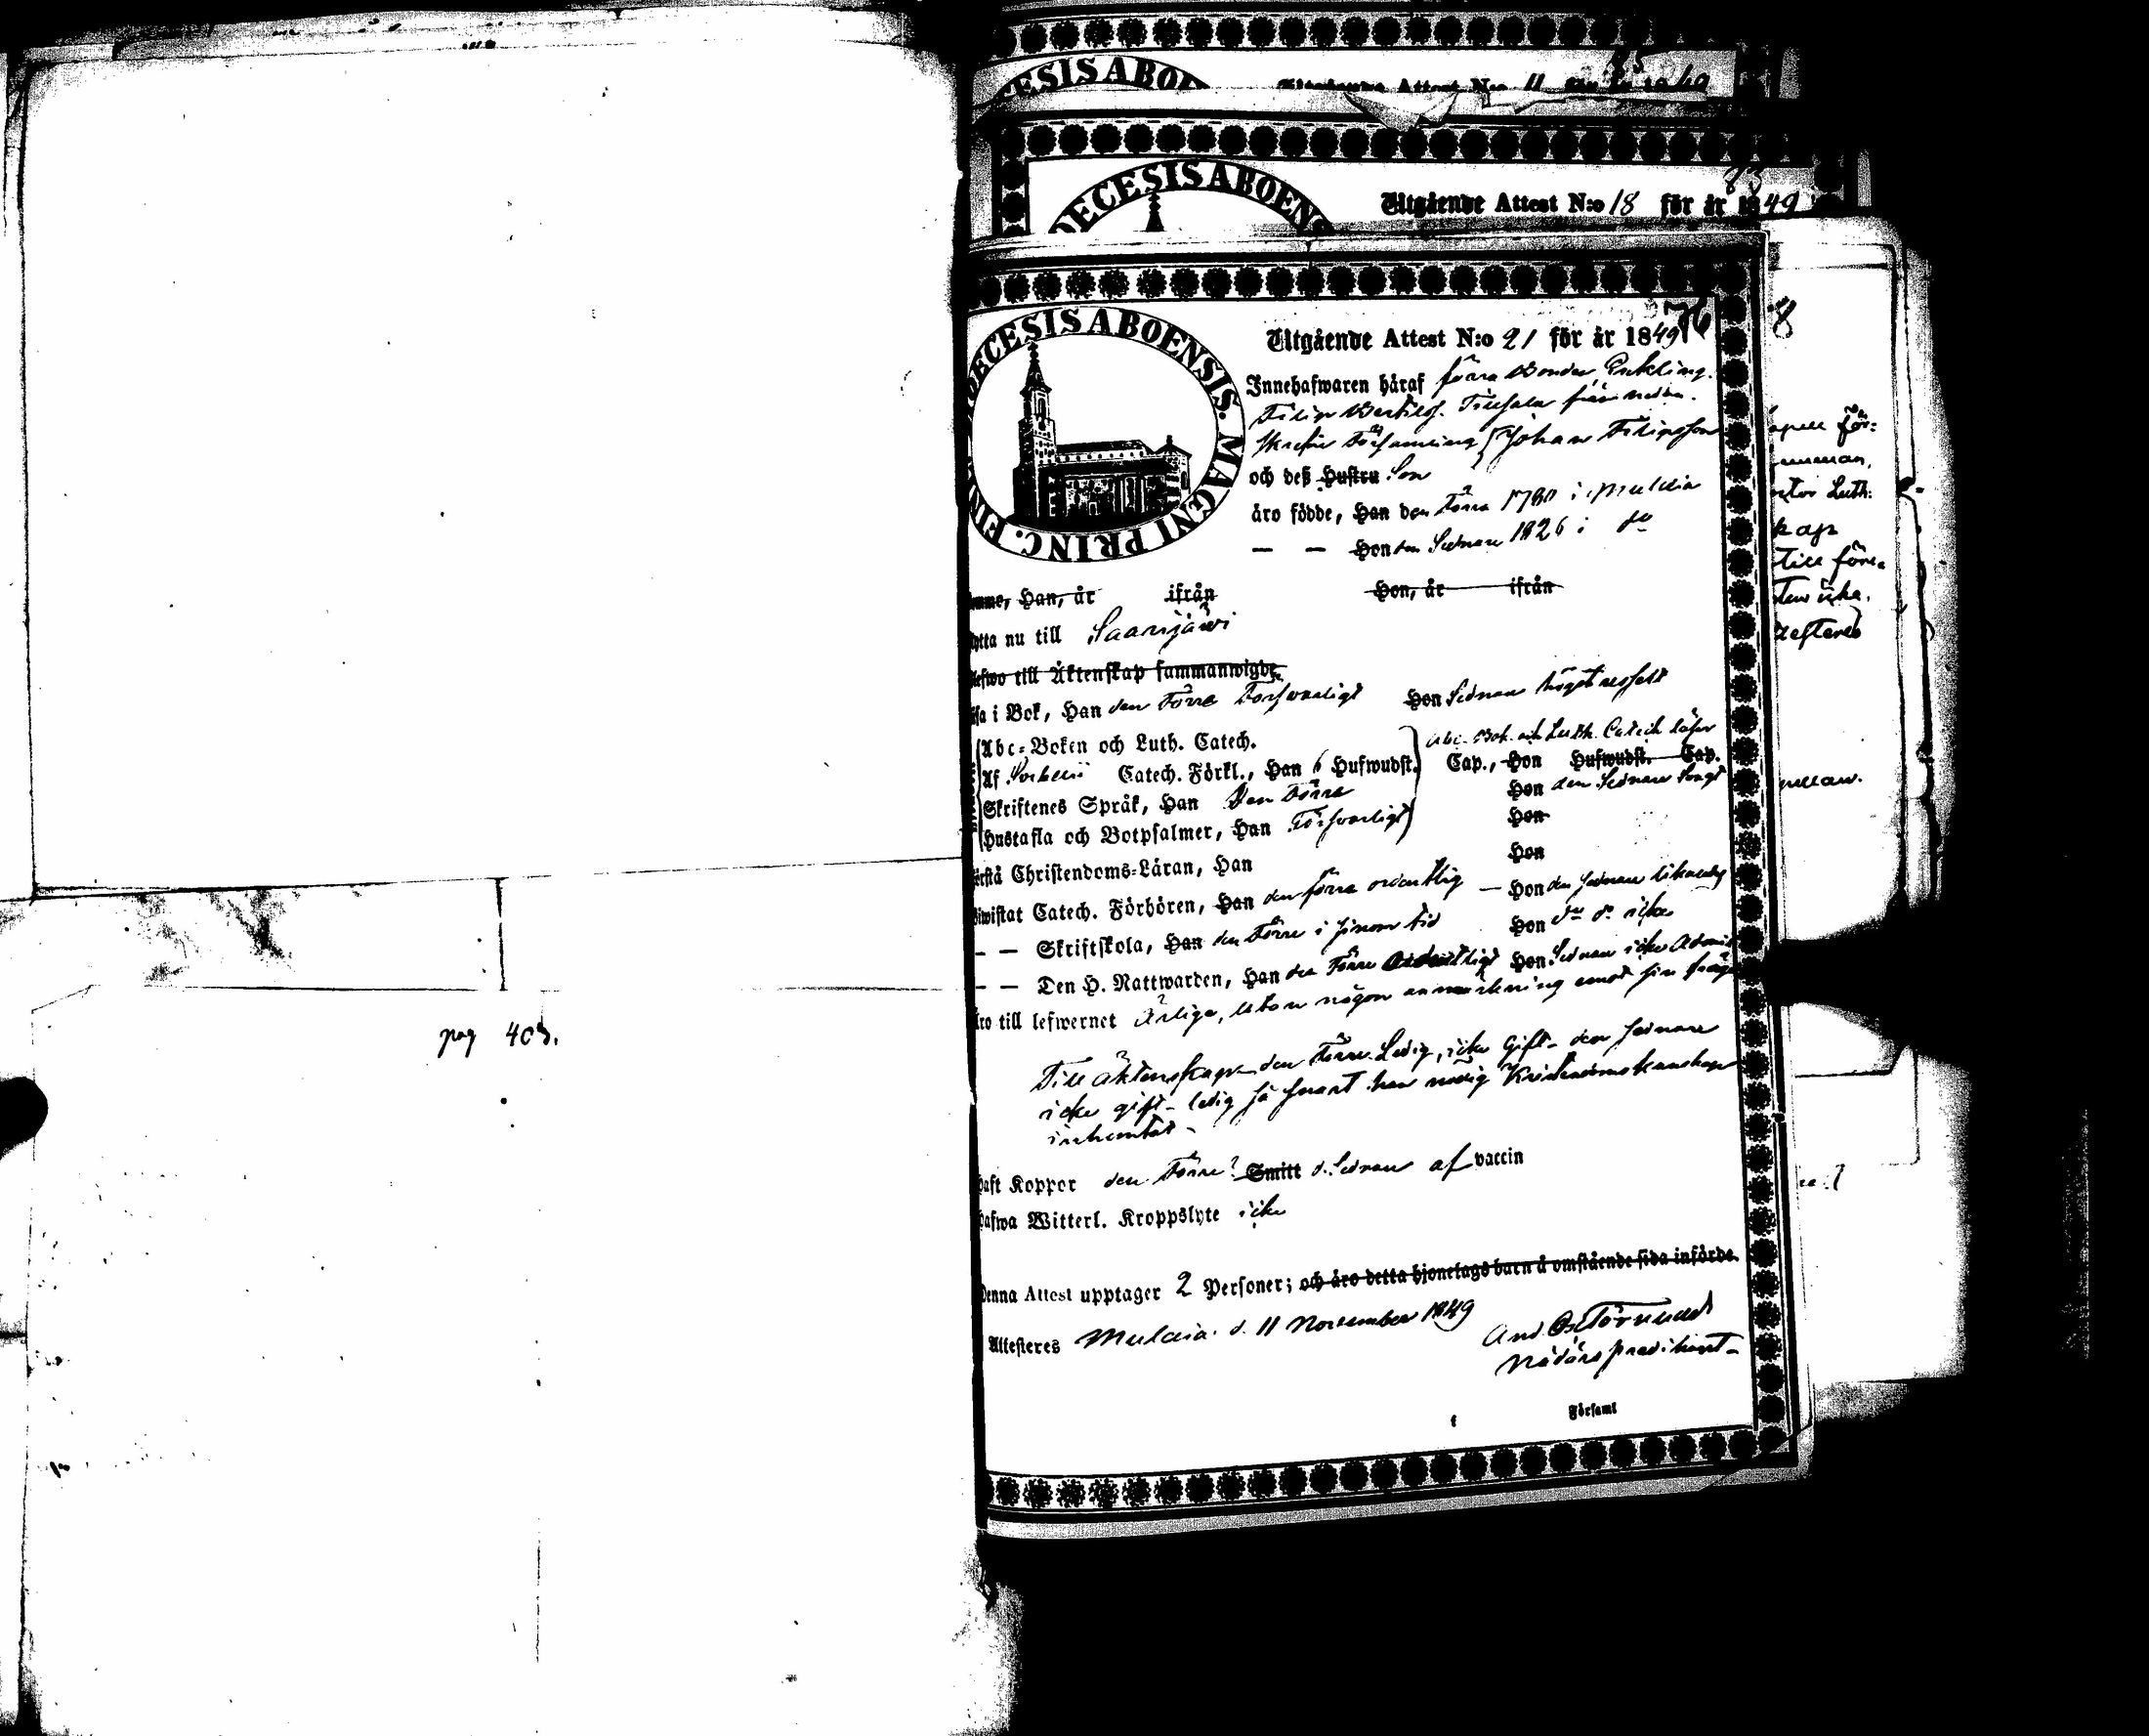 Utgående Attest N:o 11
DECESIS ABOENS
83
Utgående Attest N:o 18 för år 1849
76
DECESIS ABOENSIS. MAGNI PRINC. FIN
Utgående Attest N:o 21 för år 1849
Innehafwaren häraf förra Bonden Enkling.
Filip Bertilss. Tillsala från
Församling Johan Filipsson
och deß Hustru Son
äro födde, Han den förra 1780 i Mulcia
— — Hon den Sednare 1826 i do
Han, år ifrån Hon, år ifrån
nu till Saarijärvi
till Äktenskap sammanwigde
i Bok, Han den Förre Försvarligt Hon Sednare
Abc-Boken och Luth. Catech. Abc-Bok och Luth. Catech
Af Catech. Förkl., Han 6 Hufwudst. Cap., Hon Hufwudst. Cap.
Skriftenes Språk, Han Den Förre Hon den Sednare
Hustafla och Botpsalmer, Han Försvarligt Hon
Christendoms-Läran, Han Hon
Catech. Förhören, Han den förra ordentlig — Hon den Sednare likaledes
— — Skriftskola, Han den Förre i sinom tid Hon do do icke
— — Den H. Nattwarden, Han den Förre Ordentligt Hon Sednare icke
till lefwernet Ärlige, utan någon anmärkning emot sin
Till äktenskap den Förre Ledig, icke Gift - den Sednare
icke gift - ledig så snart han nödig Kristendomskunskap
inhemtat -
Koppor den Förre? Smitt d. Sednare af vaccin
Witterl. Kroppslyte icke
Denna Attest upptager 2 Personer; och äro detta hjonelags barn å omstående sida införde.
Attesteres Mulcia d. 11 November 1849
And Törnudd
Nådårspredikant -
Församl
pag 403.
8
Luth:
kap
till